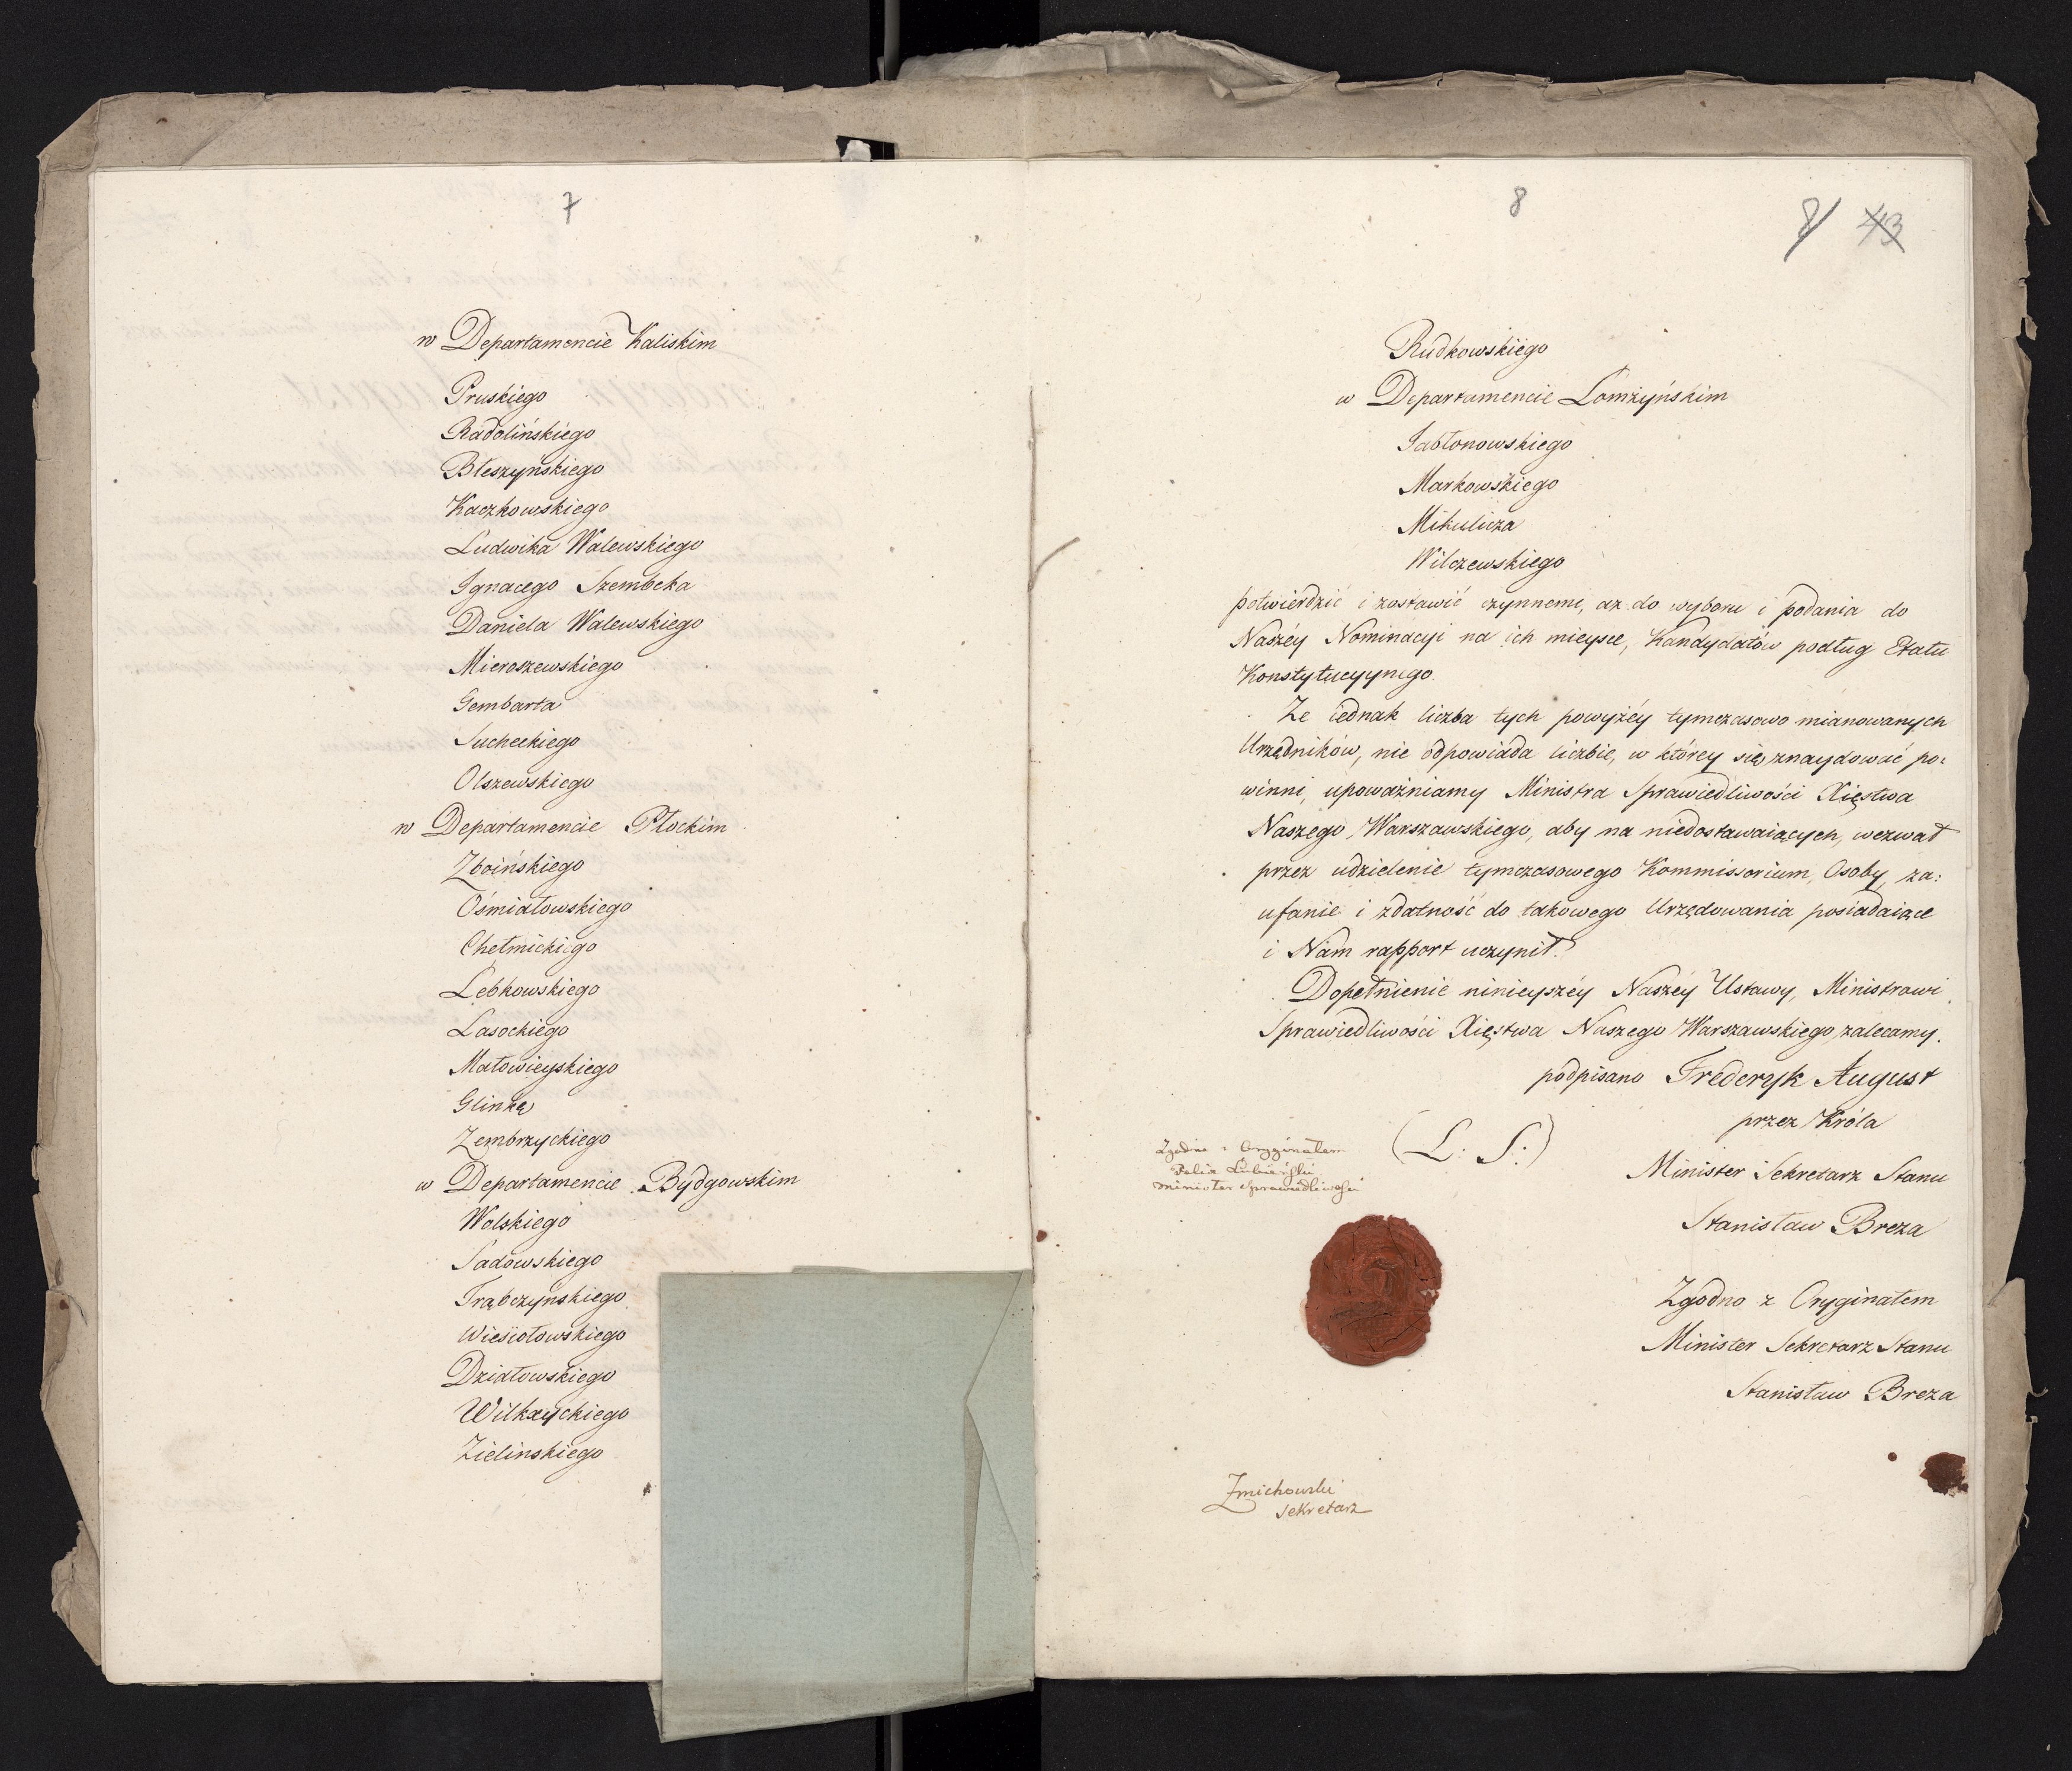 7
w Departamencie Kaliskim
Pruskiego
Radolińskiego
Błeszynskiego
Kaczkowskiego
Ludwika Walewskiego
Ignacego Szembeka
Daniela Walewskiego
Mieroszewskiego
Gembarta
Sucheckiego
Olszewskiego
w Departamencie Płockim
Zboińskiego
Ośmiałowskiego
Chełmickiego
Łebkowskiego
Lasockiego
Małowieyskiego
Glinkę
Zembrzyckiego
w Departamencie Bydgowskim
Wolskiego
Sadowskiego
Trąbczyńskiego
Wiesiołowskiego
Działowskiego
Wilkxyckiego
Zielinskiego
8
8/ 43
Rudkowskiego
w Departamencie Łomżyńskim
Jabłonowskiego
Markowskiego
Mikulicza
Wilczewskiego
potwierdzić i zostawić czynnemi, aż do wyboru i podania do
Naszéy Nominacyi na ich mieysce, Kandydatów podług Etatu
Konstytucyynego.
Że iednak liczba tych powyżéy tymczasowo mianowanych
Urzędników, nie odpowiada liczbie, w którey się znaydować po:
winni, upoważniamy Ministra Sprawiedliwości Xięstwa
Naszego Warszawskiego, aby na niedostawaiących, wezwał
przez udzielenie tymczasowego Kommissorium, Osoby, za:
ufanie i zdatność do takowego Urzędowania posiadaiące
i Nam rapport uczynił.
Dopełnienie ninieyszéy Naszéy Ustawy, Ministrowi
Sprawiedliwości Xięstwa Naszego Warszawskiego, zalecamy.
podpisano Frederyk August
przez Króla
(L: S:)
Zgodno z Orygginałem
Felix Łubieński
Minister Sprawiedliwości
Minister Sekretarz Stanu
Stanisław Breza
Zgodno z Oryginałem
Minister Sekretarz Stanu
Stanisław Breza
Zmichowski
Sekretarz